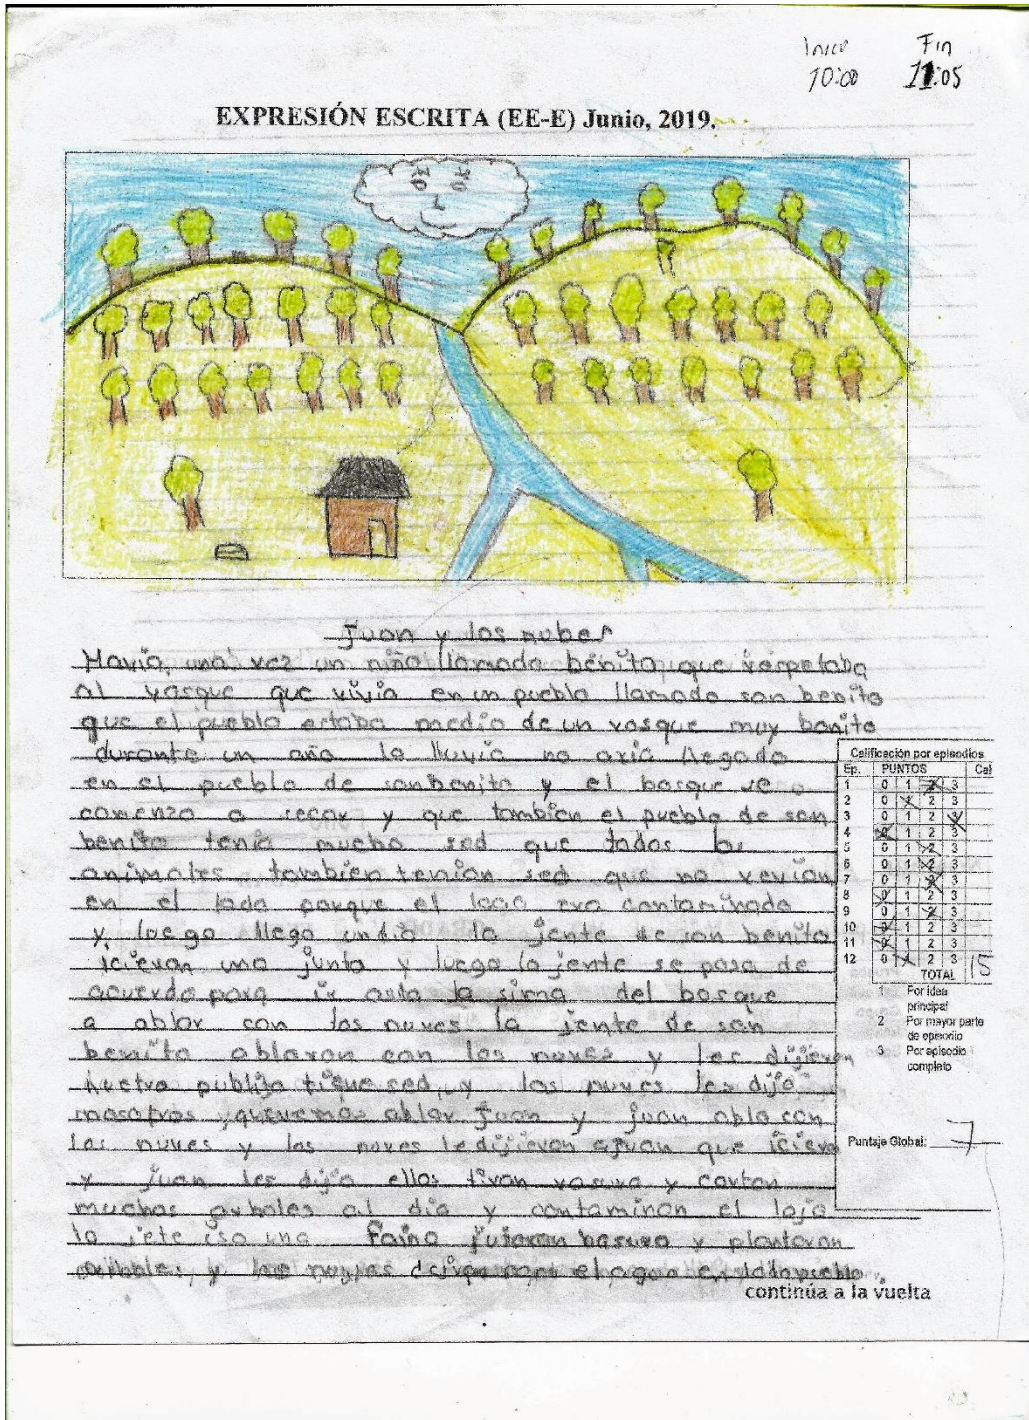 Inicio Fin
10:00 11:05
EXPRESIÓN ESCRITA (EE-E) Junio, 2019.
Juan y las nubes
Havia una vez un niño llamado benito que respetaba
al vasque que vivia en un pueblo llamado san benito
que el pueblo estaba medio de un vosque muy bonito
durante un año la lluvia no avia llegado
en el pueblo de san benito y el bosque se
comenzo a secar y que tambien el pueblo de san
benito tenia mucho sed que todos los
animales tambien tenian sed que no vevian
en el lado porque el lago era contaminado
y luego llego un dia la jente de san benito
icieron una junta y luego la jente se posa de
acuerdo para ir asta la sima del bosque
a ablar con las nuves la jente de san
benito ablaron con las nuves y les dijieron
nuetro tiene sed y las nuves les dijo
nosotros queremos ablar juan y juan ablo con
las nuves y las nuves le dijieron a juan que iciera
y juan les dijo ellos tiran vasura y cortan
muchos arboles al dia y contaminan el lajo
la jete iso una faina jutaron basura y plantaron
arboles, y las nuves el agua en pueblo.
continúa a la vuelta
Calificación por episodios
Ep. PUNTOS Cal
1 0 1 2 3
2 0 1 2 3
3 0 1 2 3
4 0 1 2 3
5 0 1 2 3
6 0 1 2 3
7 0 1 2 3
8 0 1 2 3
9 0 1 2 3
10 0 1 2 3
11 0 1 2 3
12 0 1 2 3
TOTAL 15
1 Por idea
principal
2 Por mayor parte
de episodio
3 Por episodio
completo
Puntaje Global: 7